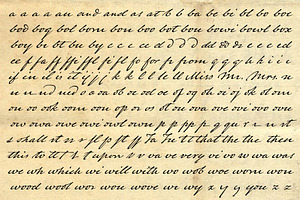 a a a a au and and as at b b ba be bi bl bo boc
bod bog bol born bou boo bot bou bowi bowl box
boy br bt bu by c c c c d d d dd ds e e e ed
ee f fa ff ffi ffl fi fl fo for fr from g g g g h k i i
if in il is it ij j k k l l ll ll Miss Mr. Mrs. n
n n nd nd s o a oa ob oc od oe of og oh oi oj ok ol om
on oo ook oom oon op or os ot ou ova ove ovi ovo ovu
ow owa owe owi owl own p p pp p q qu r r n r s t
s shall st ss r fl ps st ff Ta Te tt that the the then
this to tt t t upon v r va ve very vi vo w wa was
we wh which wi will with wo wob woe worn won
wood wool wor wou wove wr wy x y y you z z